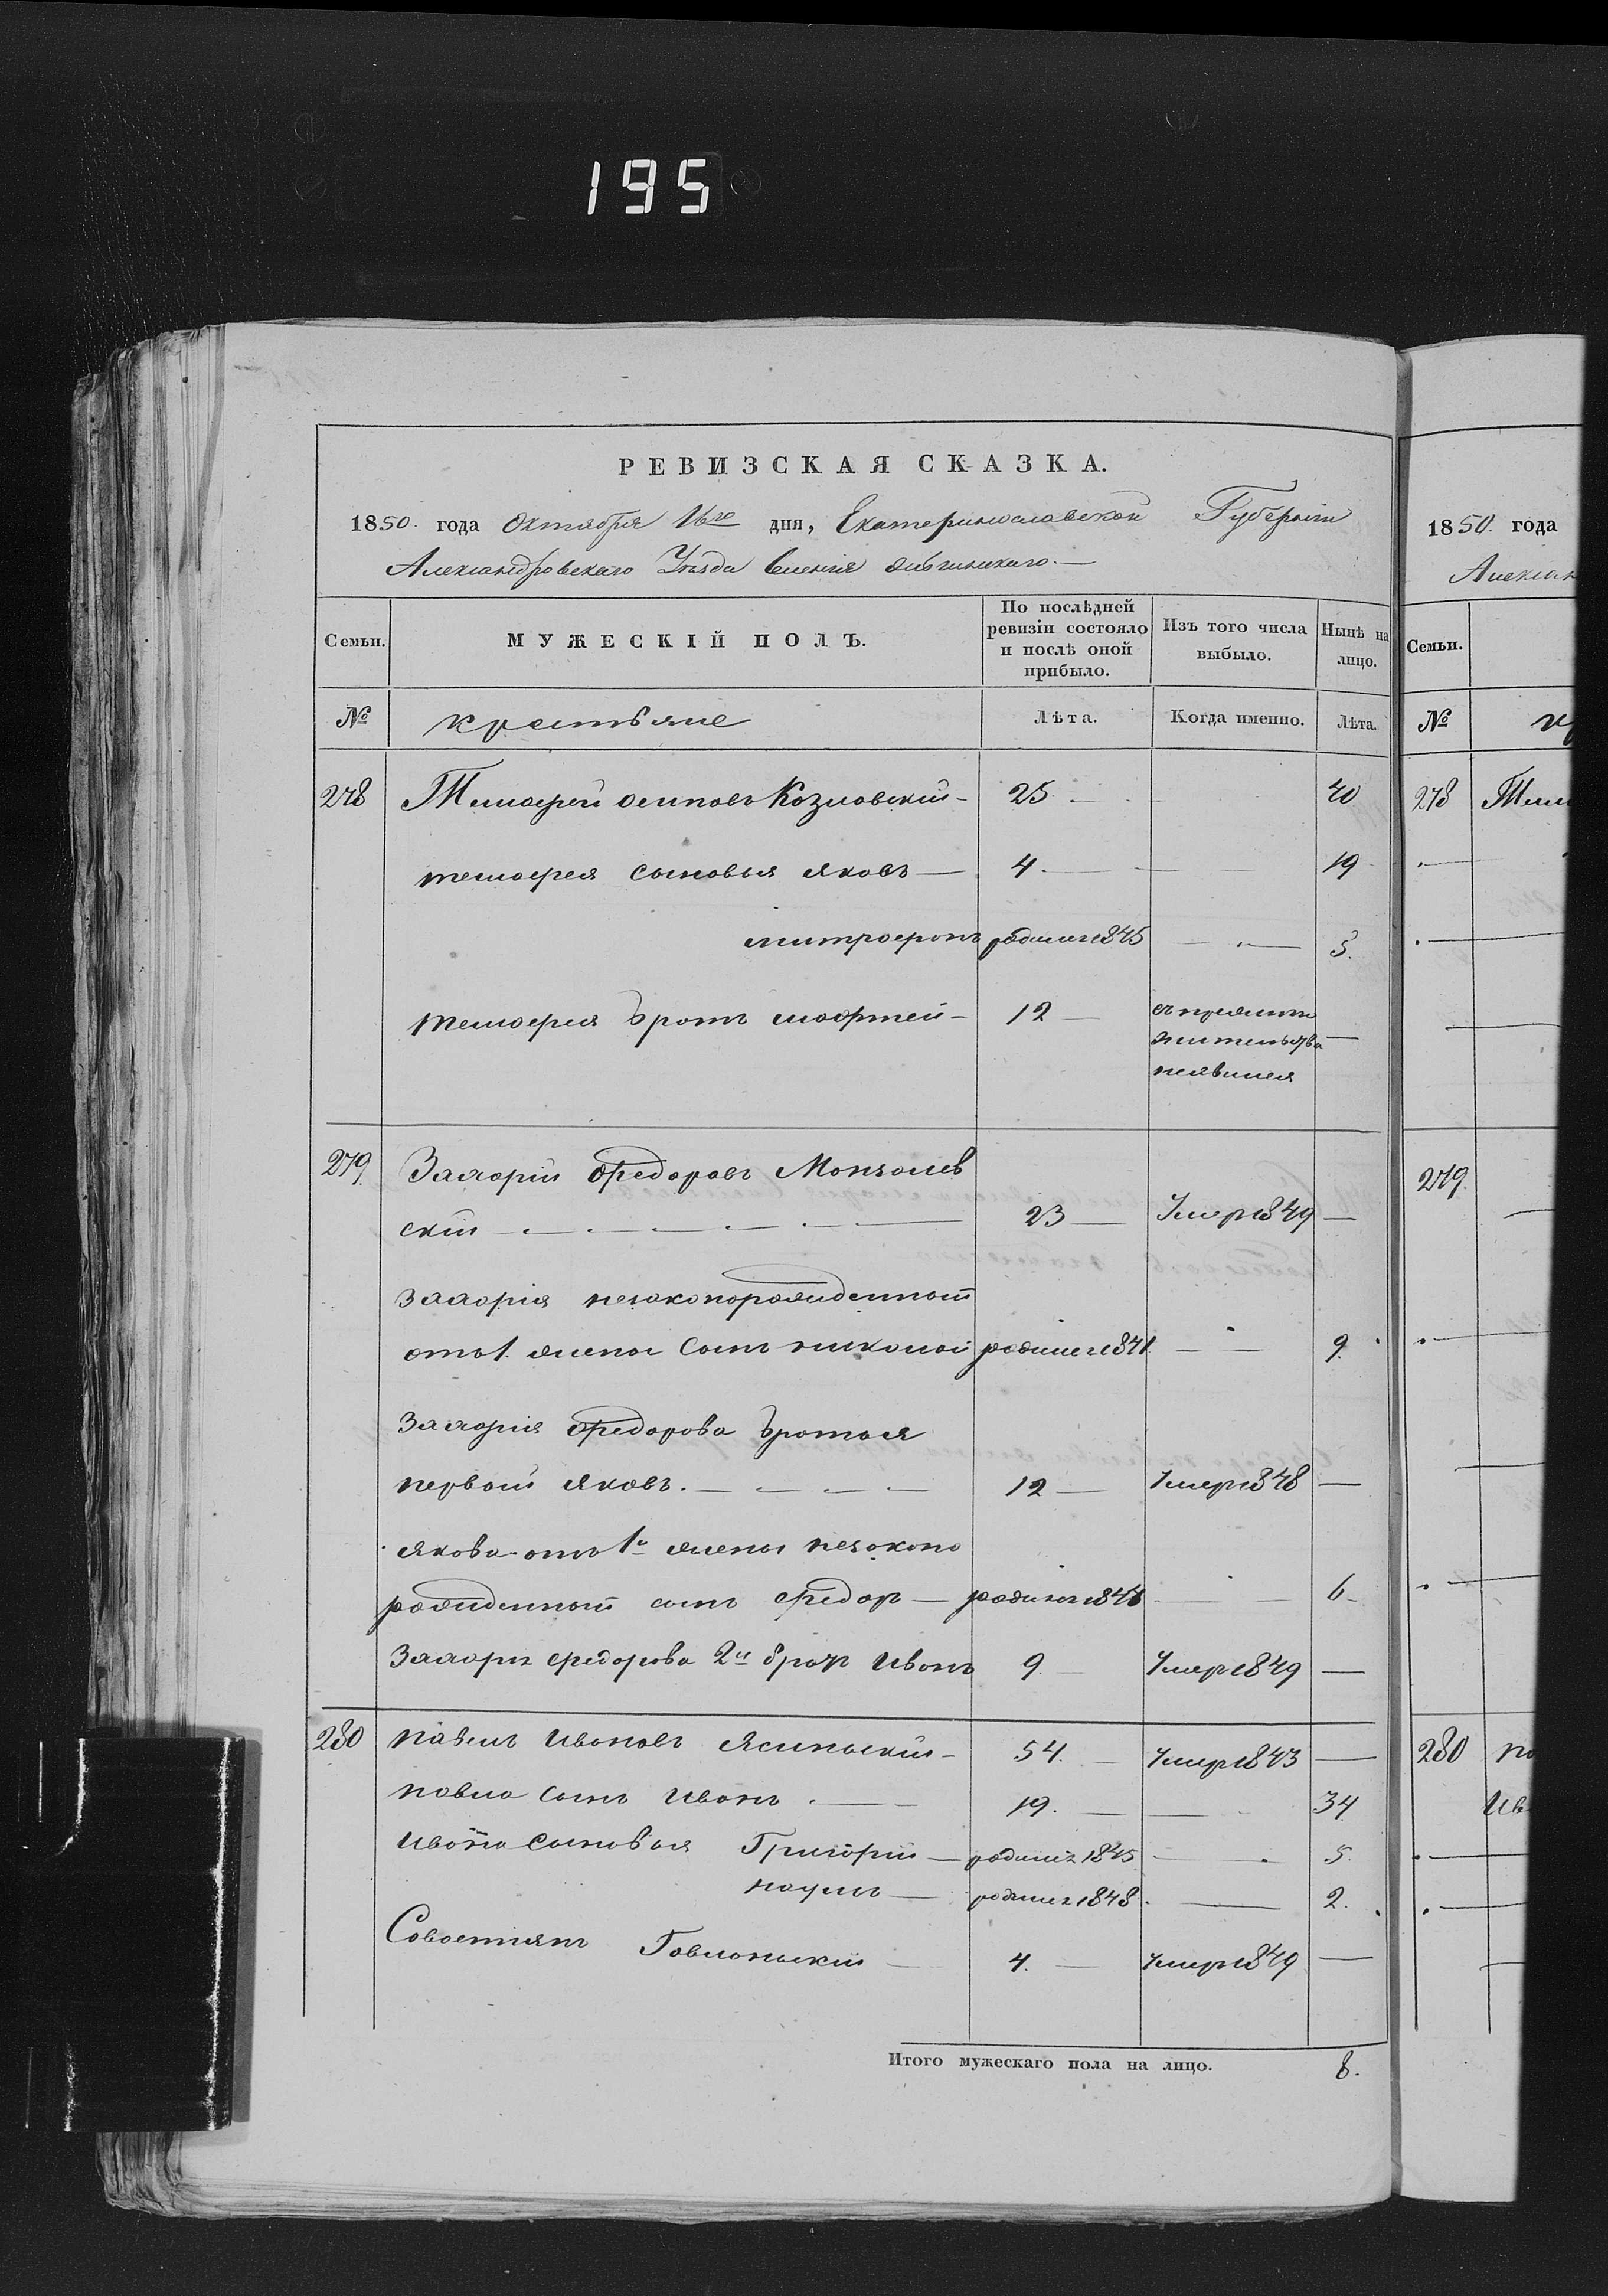 195
РЕВИЗСКАЯ СКАЗКА.
1850. года Октября 16го дня, Екатеринославской Губернiи
Александровскаго Уѣзда
Семьи.
МУЖЕСКІЙ ПОЛЪ.
По послѣдней ревизіи состояло и послѣ оной прибыло.
Изъ того числа выбыло.
Нынѣ на лицо.
№ крестьяне Лѣта. Когда именно. Лѣта.
278 Тимофей осиповъ Козловскій - 25 40
тимофея сыновья яковъ — 4 19
митрофонъ родился 1845 5.
тимофея братъ матфей - 12 —
жительства
неявился
279 Захарій Федоровъ
скій 23 Умеръ 1849 —
захарія незаконорожденный
отъ 1. жены сынъ николай родился 1841 9.
захарія Федорова братья
первый яковъ. 12 Умеръ 1848 —
якова отъ 1й жены незаконо
рожденный сынъ федор — родился 1844 6
Захарія федорова 2й братъ Иванъ 9 Умеръ 1849 —
280 павелъ Ивановъ Ясинскій - 54. Умеръ 1843 —
павла сынъ Иванъ 19. 34
Ивана сыновья Григорій — родился 1845 5.
наумъ — родился 1848 2.
Савостіянъ 4. Умеръ 1849 —
Итого мужескаго пола на лицо. 8.
1850. года
Алексан
Семьи.
№
278 Тим
279
280 па
Ив